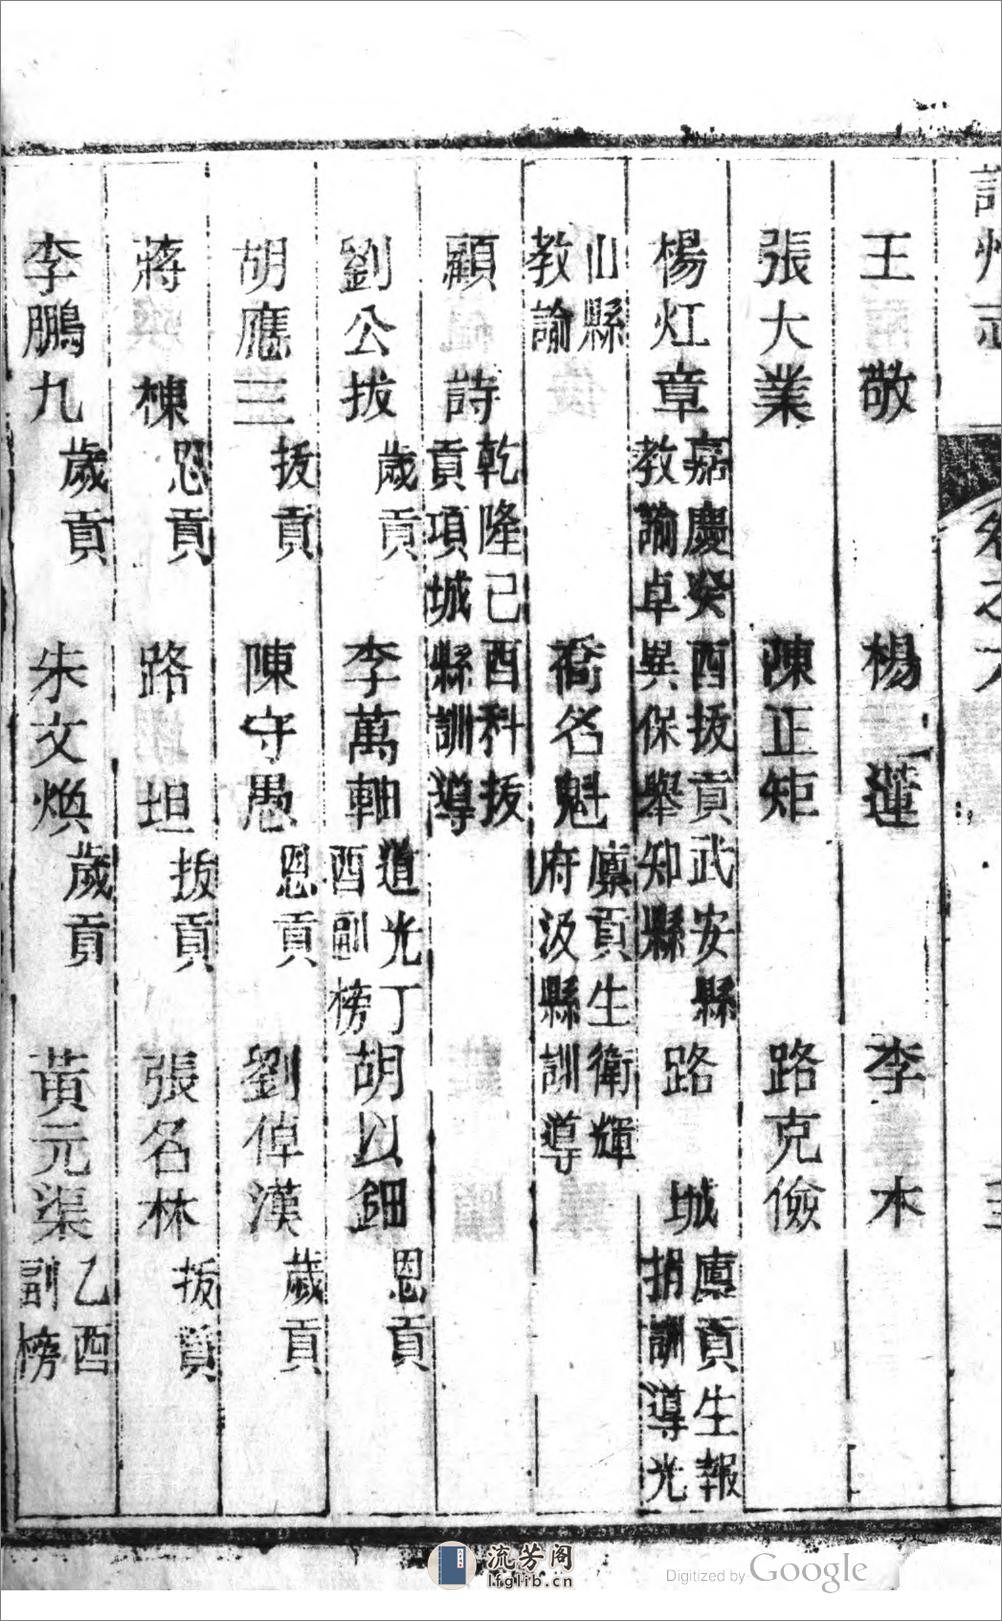 許州志
卷之六
王敬　楊蓮　李木
張大業　陳正矩　路克儉
楊灴章 嘉慶癸酉拔貢武安縣教諭卓異保舉知縣　路城 廩貢生報捐訓導光
山縣教諭　喬名魁 廩貢生衛輝府汲縣訓導
顧詩 乾隆己酉科拔貢項城縣訓導
劉公拔 歲貢　李萬軸 道光丁酉副榜　胡以鈿 恩貢
胡應三 拔貢　陳守愚 恩貢　劉倬漢 歲貢
蔣棟 恩貢　路坦 拔貢　張名林 拔貢
李鵬九 歲貢　朱文煥 歲貢　黃元渠 乙酉副榜
流芳阁
lfglib.cn
Digitized by Google